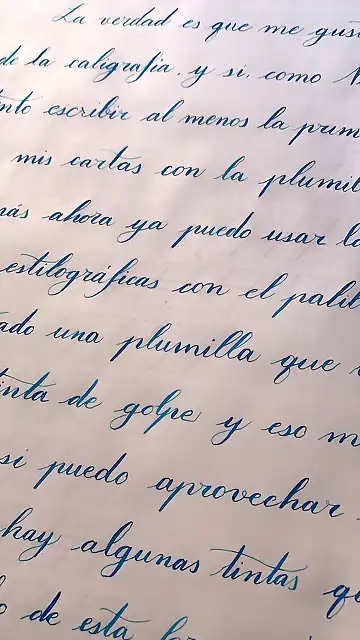 La verdad es que me gus
de la caligrafía. y si. como
nto escribir al menos la prim
mis cartas con la plumil
más ahora ya puedo usar l
estilográficas con el palil
ado una plumilla que
inta de golpe y eso m
si puedo aprovechar
hay algunas tintas qu
de esta